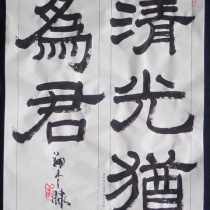 清光猶
為君